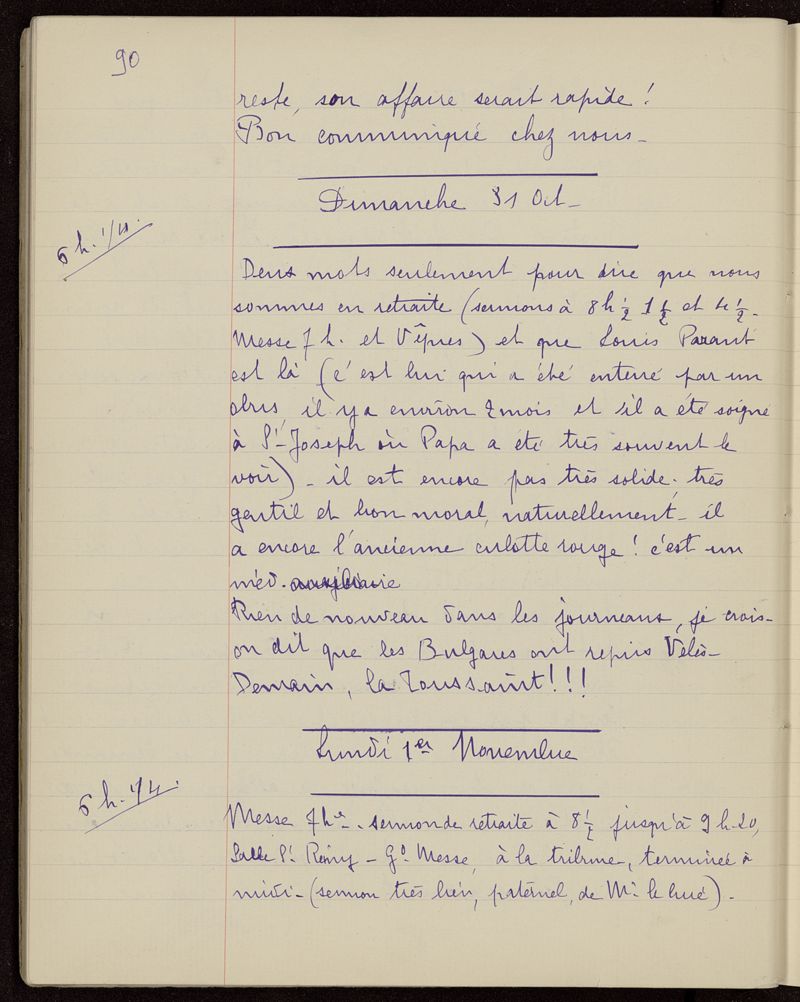 90
reste, son affaire serait rapide !
Bon communiqué chez nous -
Dimanche 31 Oct -
6 h. 1/4.
Deux mots seulement pour dire que nous
sommes en retraite (sermons à 8h ½ 1 ½ et 4 ½ -
Messe 7 h. et Vêpres) et que Louis Parant
est là (c'est lui qui a été enterré par un
obus, il y a environ 2 mois et s'il a été soigné
à St-Joseph où Papa a été très souvent le
voir) - il est encore pas très solide. très
gentil et bon moral, naturellement - il
a encore l'ancienne culotte rouge ! c'est un
méd. auxiliaire
Rien de nouveau dans les journeaux, je crois -
on dit que les Bulgares ont repris Vélès -
Demain, la Toussaint ! ! !
Lundi 1er Novembre
6 h. 1/4.
Messe 7 hes - sermon de retraite à 8 ½ jusqu'à 9 h. 20,
Salle St Rémy - Gd Messe, à la tribune, terminée à
midi - (sermon très bien, paternel, de Mr le Curé) .